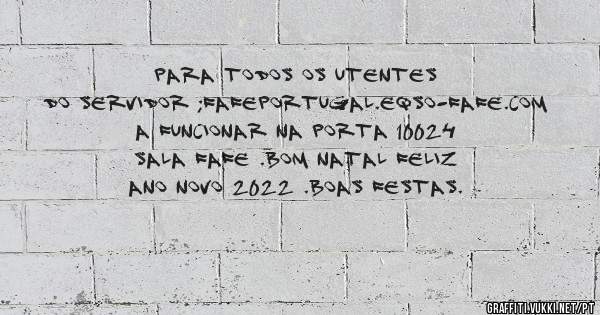 PARA TODOS OS UTENTES
DO SERVIDOR ;FAFEPORTUGAL.EQSO-FAFE.COM
A FUNCIONAR NA PORTA 10024
SALA FAFE .BOM NATAL FELIZ
ANO NOVO 2022 .BOAS FESTAS.
GRAFFITI.YUKKI.NET/PT